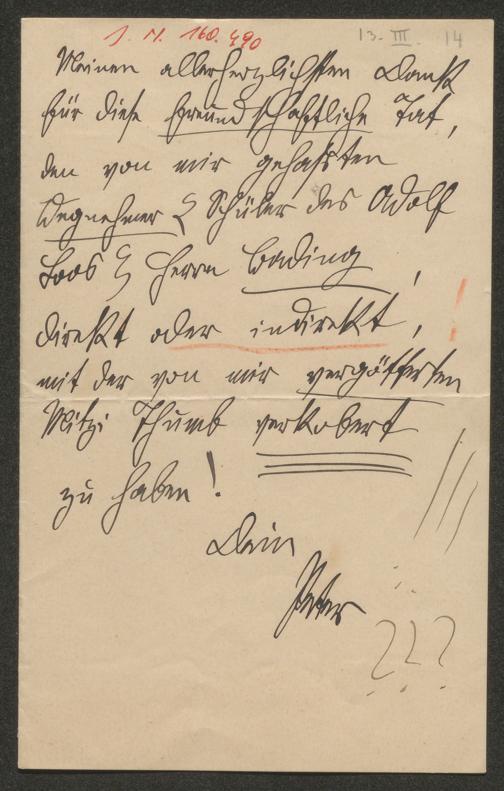 J. N. 160.490
13. III. 14
Meinen allerherzlichsten Dank
für diese freundschaftliche Tat,
den von mir gehassten
Wegnehmer & Schüler des Adolf
Loos & Herrn
direkt oder indirekt,
mit der von mir vergötterten
Mitzi Thumb verkobert
zu haben!
Dein
Peter
???